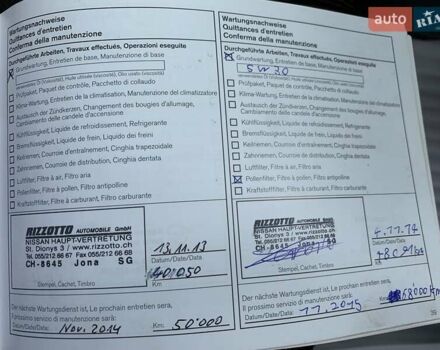 auto
RIA
Wartungsnachweise
Quittances d'entretien
Conferma della manutenzione
Durchgeführte Arbeiten, Travaux effectués, Operazioni eseguite
Grundwartung, Entretien de base, Manutenzione di base
Prüfpaket, Paquet de contrôle, Pacchetto di collaudo
Klima-Wartung, Entretien de la climatisation, Manutenzione del climatizzatore
Austausch der Zündkerzen, Changement des bougies d'allumage,
Cambiamento delle candele d'accensione
Kühlflüssigkeit, Liquide de refroidissement, Refrigerante
Bremsflüssigkeit, Liquide de frein, Liquido dei freini
Keilriemen, Courroie d'entraînement, Cinghia trapezoidale
Zahnriemen, Courroie de distribution, Cinghia dentata
Luftfilter, Filtre à air, Filtro aria
Pollenfilter, Filtre à pollen, Filtro antipolline
Kraftstofffilter, Filtre à carburant, Filtro carburante
RIZZOTTO AUTOMOBILE GmbH
NISSAN HAUPT-VERTRETUNG
St. Dionys 3 / www.rizzotto.ch
Tel. 055/212 66 67 Fax 055/212 66 68
CH-8645 Jona SG
Stempel, Cachet, Timbro
13.11.13
Datum/Date/Data
40'050
Km:
Der nächste Wartungsdienst ist, Le prochain entretien sera,
Il prossimo servizio di manutenzione sarà:
Nov. 2014
50'000
Datum/Date/Data
Km:
Wartungsnachweise
Quittances d'entretien
Conferma della manutenzione
Durchgeführte Arbeiten, Travaux effectués, Operazioni eseguite
Grundwartung, Entretien de base, Manutenzione di base
5W30
Prüfpaket, Paquet de contrôle, Pacchetto di collaudo
Klima-Wartung, Entretien de la climatisation, Manutenzione del climatizzatore
Austausch der Zündkerzen, Changement des bougies d'allumage,
Cambiamento delle candele d'accensione
Kühlflüssigkeit, Liquide de refroidissement, Refrigerante
Bremsflüssigkeit, Liquide de frein, Liquido dei freini
Keilriemen, Courroie d'entraînement, Cinghia trapezoidale
Zahnriemen, Courroie de distribution, Cinghia dentata
Luftfilter, Filtre à air, Filtro aria
Pollenfilter, Filtre à pollen, Filtro antipolline
Kraftstofffilter, Filtre à carburant, Filtro carburante
RIZZOTTO AUTOMOBILE GmbH
NISSAN HAUPT-VERTRETUNG
St. Dionys 3 / www.rizzotto.ch
Tel. 055/212 66 67 Fax 055/212 66 68
CH-8645 Jona SG
Stempel, Cachet, Timbro
4.11.14
Datum/Date/Data
Km:
Der nächste Wartungsdienst ist, Le prochain entretien sera,
Il prossimo servizio di manutenzione sarà:
11.2015
Datum/Date/Data
Km:
39